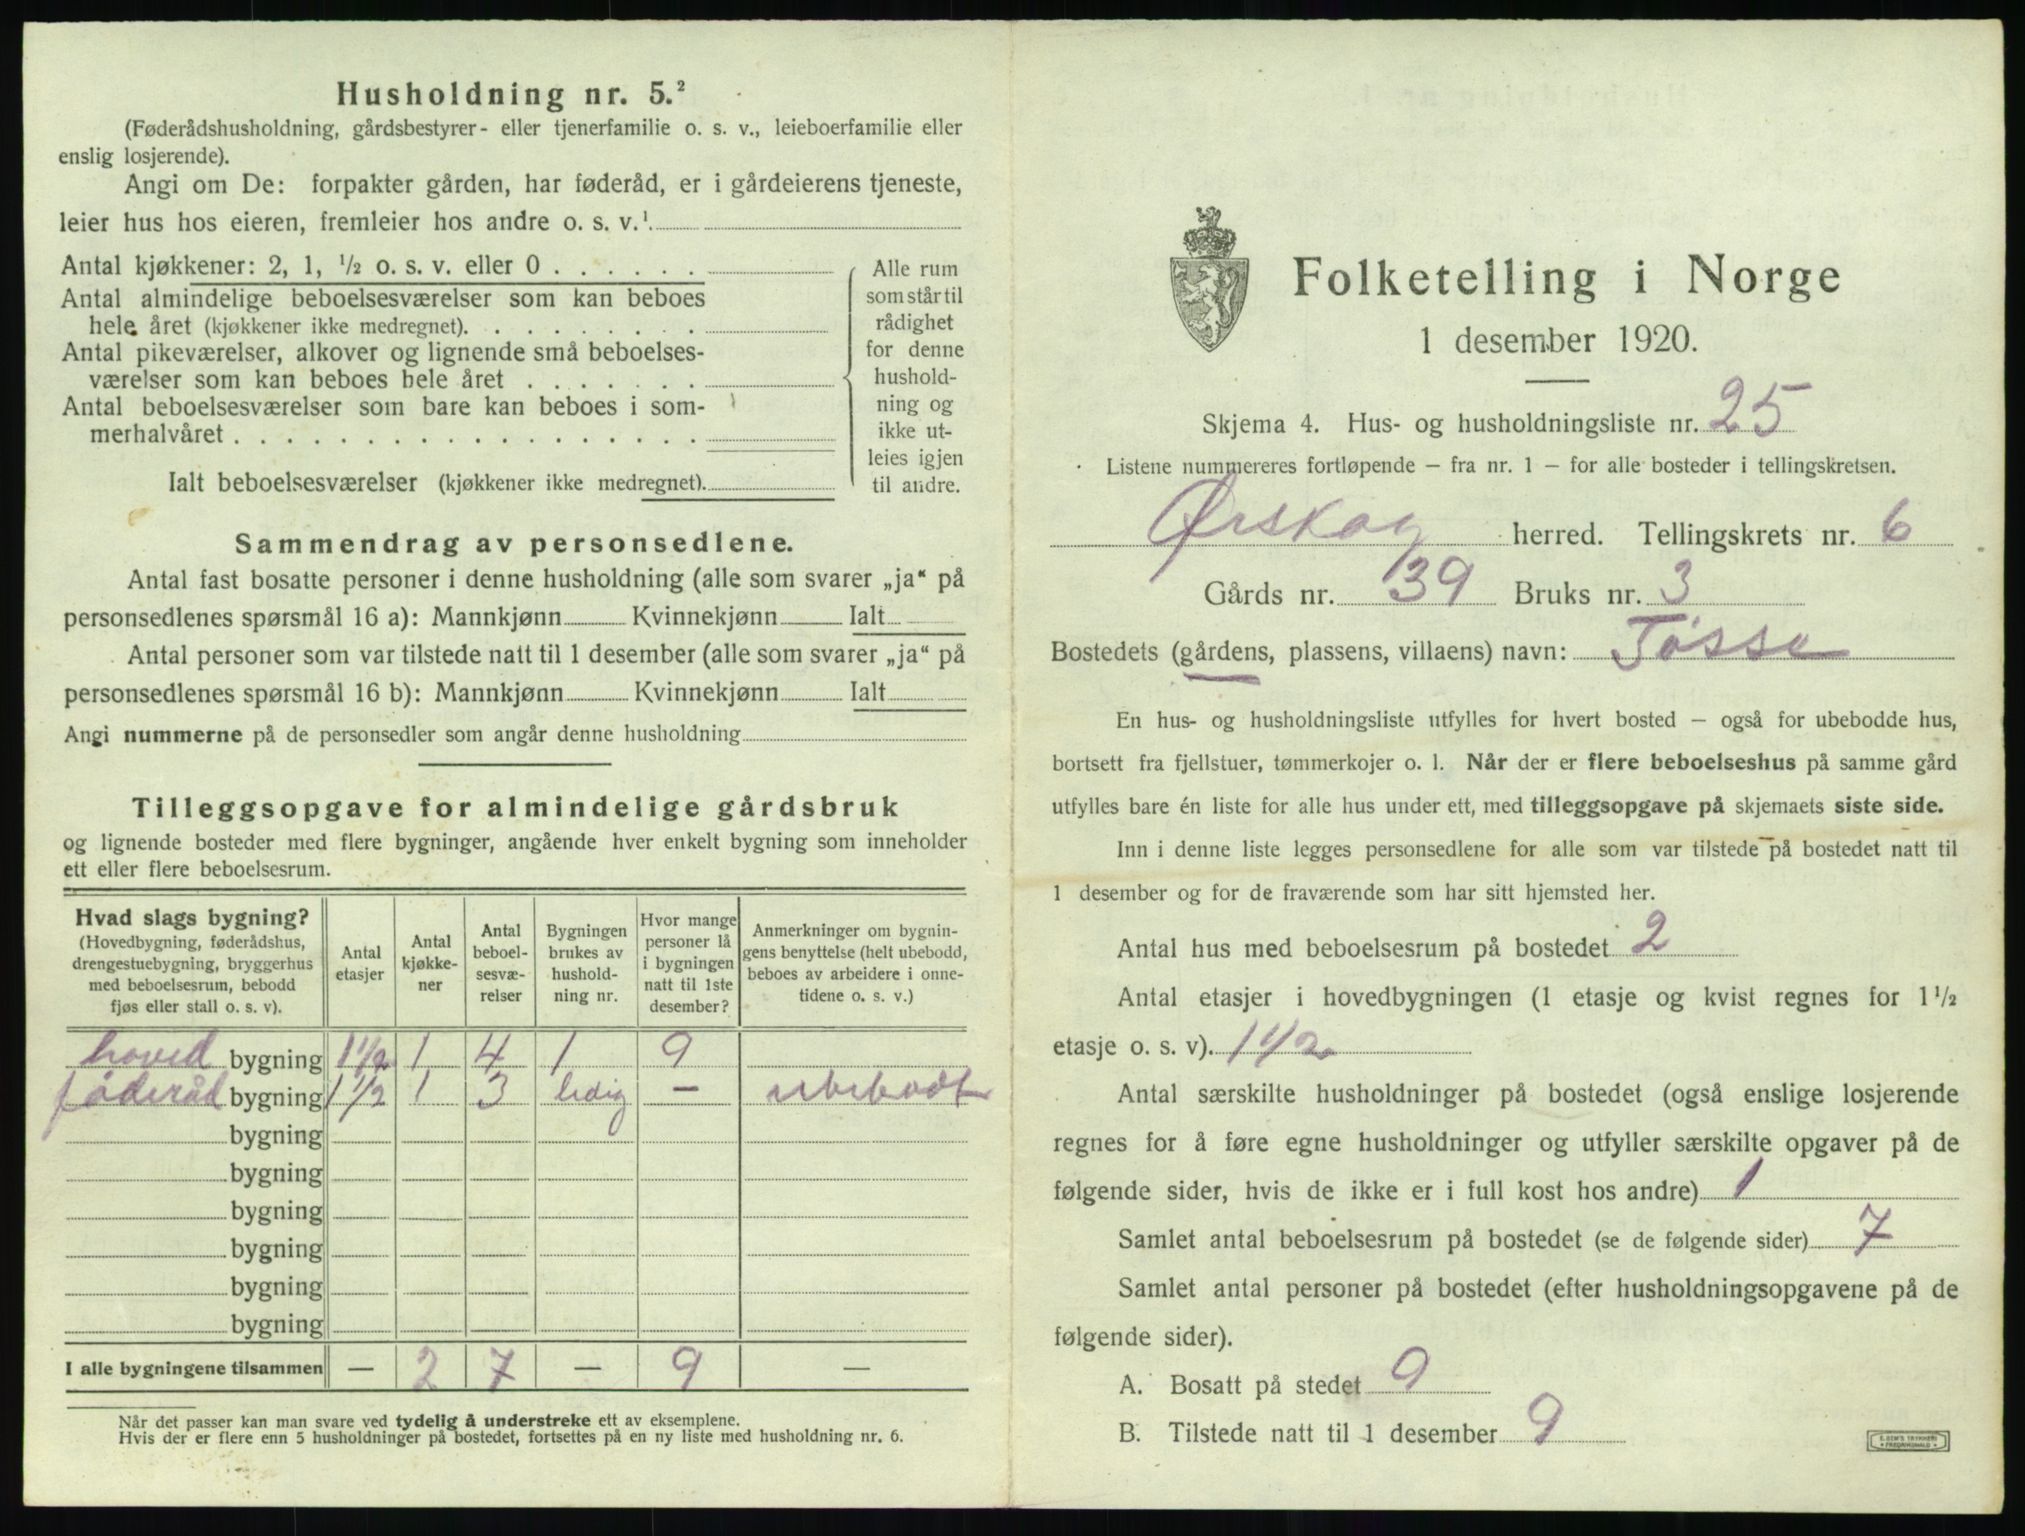 Husholdning nr. 5.²
(Føderådshusholdning, gårdsbestyrer- eller tjenerfamilie o. s. v., leieboerfamilie eller
enslig losjerende).
Angi om De: forpakter gården, har føderåd, er i gårdeierens tjeneste,
leier hus hos eieren, fremleier hos andre o. s. v.¹
Antal kjøkkener: 2, 1, ½ o. s. v. eller 0 . . . . . .
Antal almindelige beboelsesværelser som kan beboes
hele året (kjøkkener ikke medregnet). . . . . . . . .
Antal pikeværelser, alkover og lignende små beboelses-
værelser som kan beboes hele året . . . . . . .
Antal beboelsesværelser som bare kan beboes i som-
merhalvåret . . . . . . . . . . . . . . . . . .
Ialt beboelsesværelser (kjøkkener ikke medregnet).
Alle rum
som står til
rådighet
for denne
hushold-
ning og
ikke ut-
leies igjen
til andre.
Sammendrag av personsedlene.
Antal fast bosatte personer i denne husholdning (alle som svarer „ja“ på
personsedlenes spørsmål 16 a): Mannkjønn Kvinnekjønn Ialt
Antal personer som var tilstede natt til 1 desember (alle som svarer „ja“ på
personsedlenes spørsmål 16 b): Mannkjønn Kvinnekjønn Ialt
Angi nummerne på de personsedler som angår denne husholdning
Tilleggsopgave for almindelige gårdsbruk
og lignende bosteder med flere bygninger, angående hver enkelt bygning som inneholder
ett eller flere beboelsesrum.
Hvad slags bygning?
(Hovedbygning, føderådshus,
drengestuebygning, bryggerhus
med beboelsesrum, bebodd
fjøs eller stall o. s. v).
Antal
etasjer
Antal
kjøkke-
ner
Antal
beboel-
sesvæ-
relser
Bygningen
brukes av
hushold-
ning nr.
Hvor mange
personer lå
i bygningen
natt til 1ste
desember?
Anmerkninger om bygnin-
gens benyttelse (helt ubebodd,
beboes av arbeidere i onne-
tidene o. s. v.)
hoved bygning 1½ 1 4 1 9
føderåd bygning 1½ 1 3 ledig — ubebodt
bygning
bygning
bygning
bygning
bygning
bygning
I alle bygningene tilsammen — 2 7 — 9 —
Når det passer kan man svare ved tydelig å understreke ett av eksemplene.
Hvis der er flere enn 5 husholdninger på bostedet, fortsettes på en ny liste med husholdning nr. 6.
Folketelling i Norge
1 desember 1920.
Skjema 4. Hus- og husholdningsliste nr. 25
Listene nummereres fortløpende – fra nr. 1 – for alle bosteder i tellingskretsen.
Ørskog herred. Tellingskrets nr. 6
Gårds nr. 39 Bruks nr. 3
Bostedets (gårdens, plassens, villaens) navn: Tøsse
En hus- og husholdningsliste utfylles for hvert bosted – også for ubebodde hus,
bortsett fra fjellstuer, tømmerkojer o. l. Når der er flere beboelseshus på samme gård
utfylles bare én liste for alle hus under ett, med tilleggsopgave på skjemaets siste side.
Inn i denne liste legges personsedlene for alle som var tilstede på bostedet natt til
1 desember og for de fraværende som har sitt hjemsted her.
Antal hus med beboelsesrum på bostedet 2
Antal etasjer i hovedbygningen (1 etasje og kvist regnes for 1½
etasje o. s. v). 1½
Antal særskilte husholdninger på bostedet (også enslige losjerende
regnes for å føre egne husholdninger og utfyller særskilte opgaver på de
følgende sider, hvis de ikke er i full kost hos andre) 1
Samlet antal beboelsesrum på bostedet (se de følgende sider) 7
Samlet antal personer på bostedet (efter husholdningsopgavene på de
følgende sider).
A. Bosatt på stedet 9
B. Tilstede natt til 1 desember 9
E. SEM'S TRYKKERI
FREDRIKSHALD